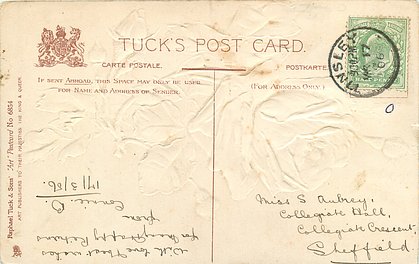 TUCK'S POST CARD.
CARTE POSTALE.
POSTKARTE
IF SENT ABROAD, THIS SPACE MAY ONLY BE USED
FOR NAME AND ADDRESS OF SENDER.
(FOR ADDRESS ONLY)
TINSLEY
17
06
Raphael Tuck & Sons' "Art" Postcard No 6854
ART PUBLISHERS TO THEIR MAJESTIES THE KING & QUEEN
With love & best wishes
for many Happy Returns
from
17/3/06.
Miss S Aubrey,
Collegiate Hall,
Collegiate Crescent,
Sheffield.